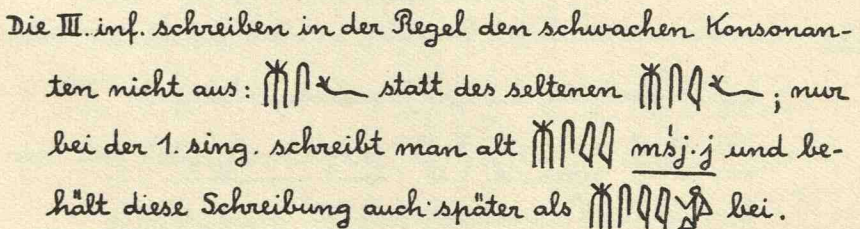 Die III. inf. schreiben in der Regel den schwachen Konsonan-
ten nicht aus: 𓄟𓋴𓆑 statt des seltenen 𓄟𓋴𓇋𓆑; nur
bei der 1. sing. schreibt man alt 𓄟𓋴𓇋𓇋 mśj·j und be-
hält diese Schreibung auch später als 𓄟𓋴𓇋𓇋𓀀 bei.